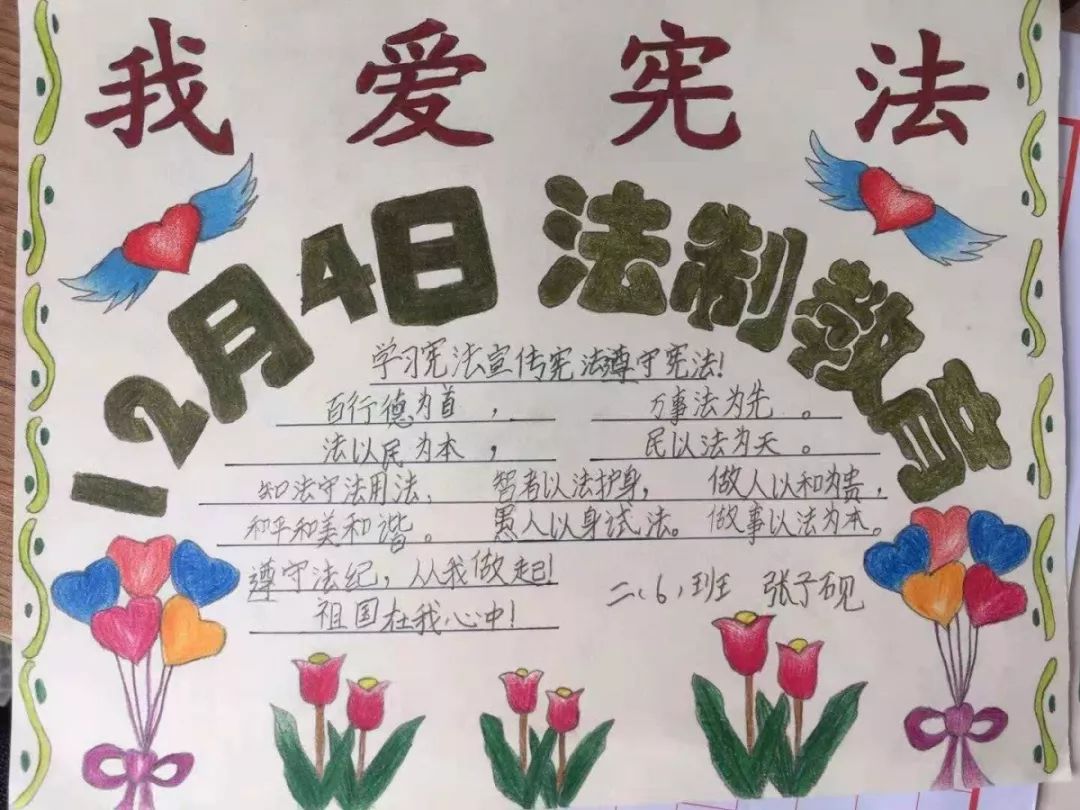 我爱宪法
12月4日 法制教育
学习宪法宣传宪法遵守宪法!
百行德为首, 万事法为先。
法以民为本, 民以法为天。
知法守法用法, 智者以法护身, 做人以和为贵,
和平和美和谐。 愚人以身试法。 做事以法为本。
遵守法纪,从我做起! 二(6)班 张子砚
祖国在我心中!